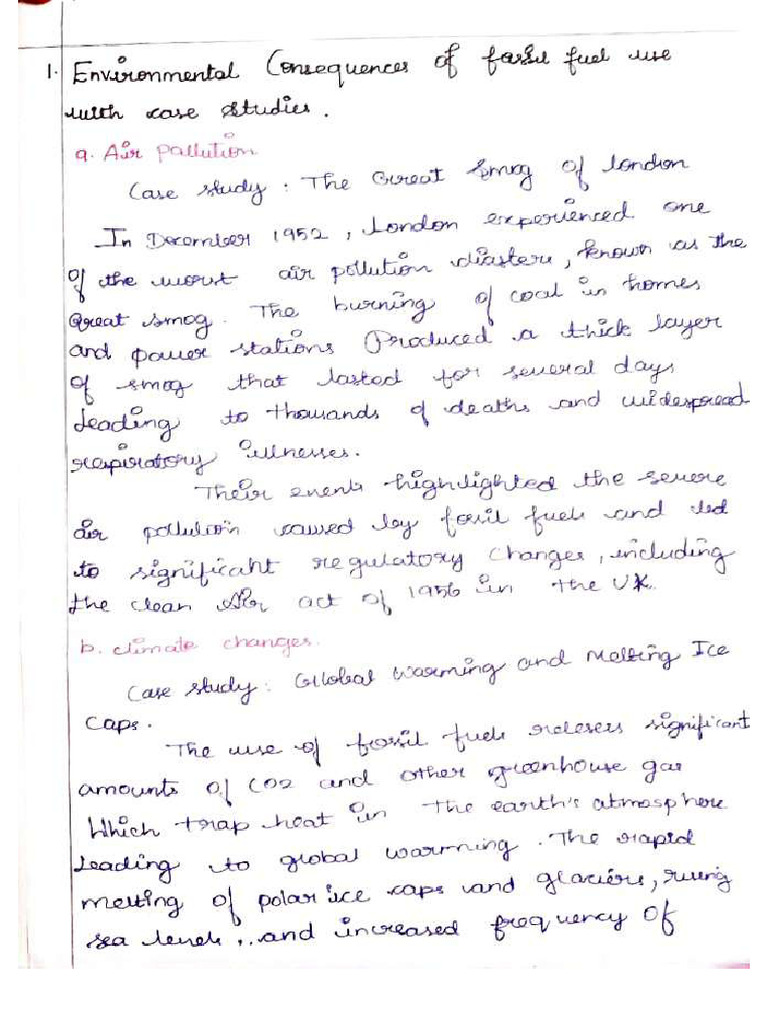 1. Environmental Consequences of fossil fuel use
with case studies.
a. Air pollution
Case study : The Great Smog of london
In December 1952, London experienced one
of the worst air pollution diaster, known as the
Great smog. The burning of coal in homes
and power stations Produced a thick layer
of smog that lasted for several days
leading to thousands of deaths and widespread
respiratory illnesses.
Their events highlighted the severe
air pollution caused by fossil fuels and led
to significant regulatory changes, including
the clean Air act of 1956 in the UK.
b. climate changes.
Case study : Global warming and Melting Ice
Caps.
The use of fossil fuels releses significant
amounts of CO2 and other greenhouse gas
Which trap heat in the earth's atmosphere
leading to global warming. The rapid
melting of polar ice caps and glaciers, rising
sea levels, and increased frequency of